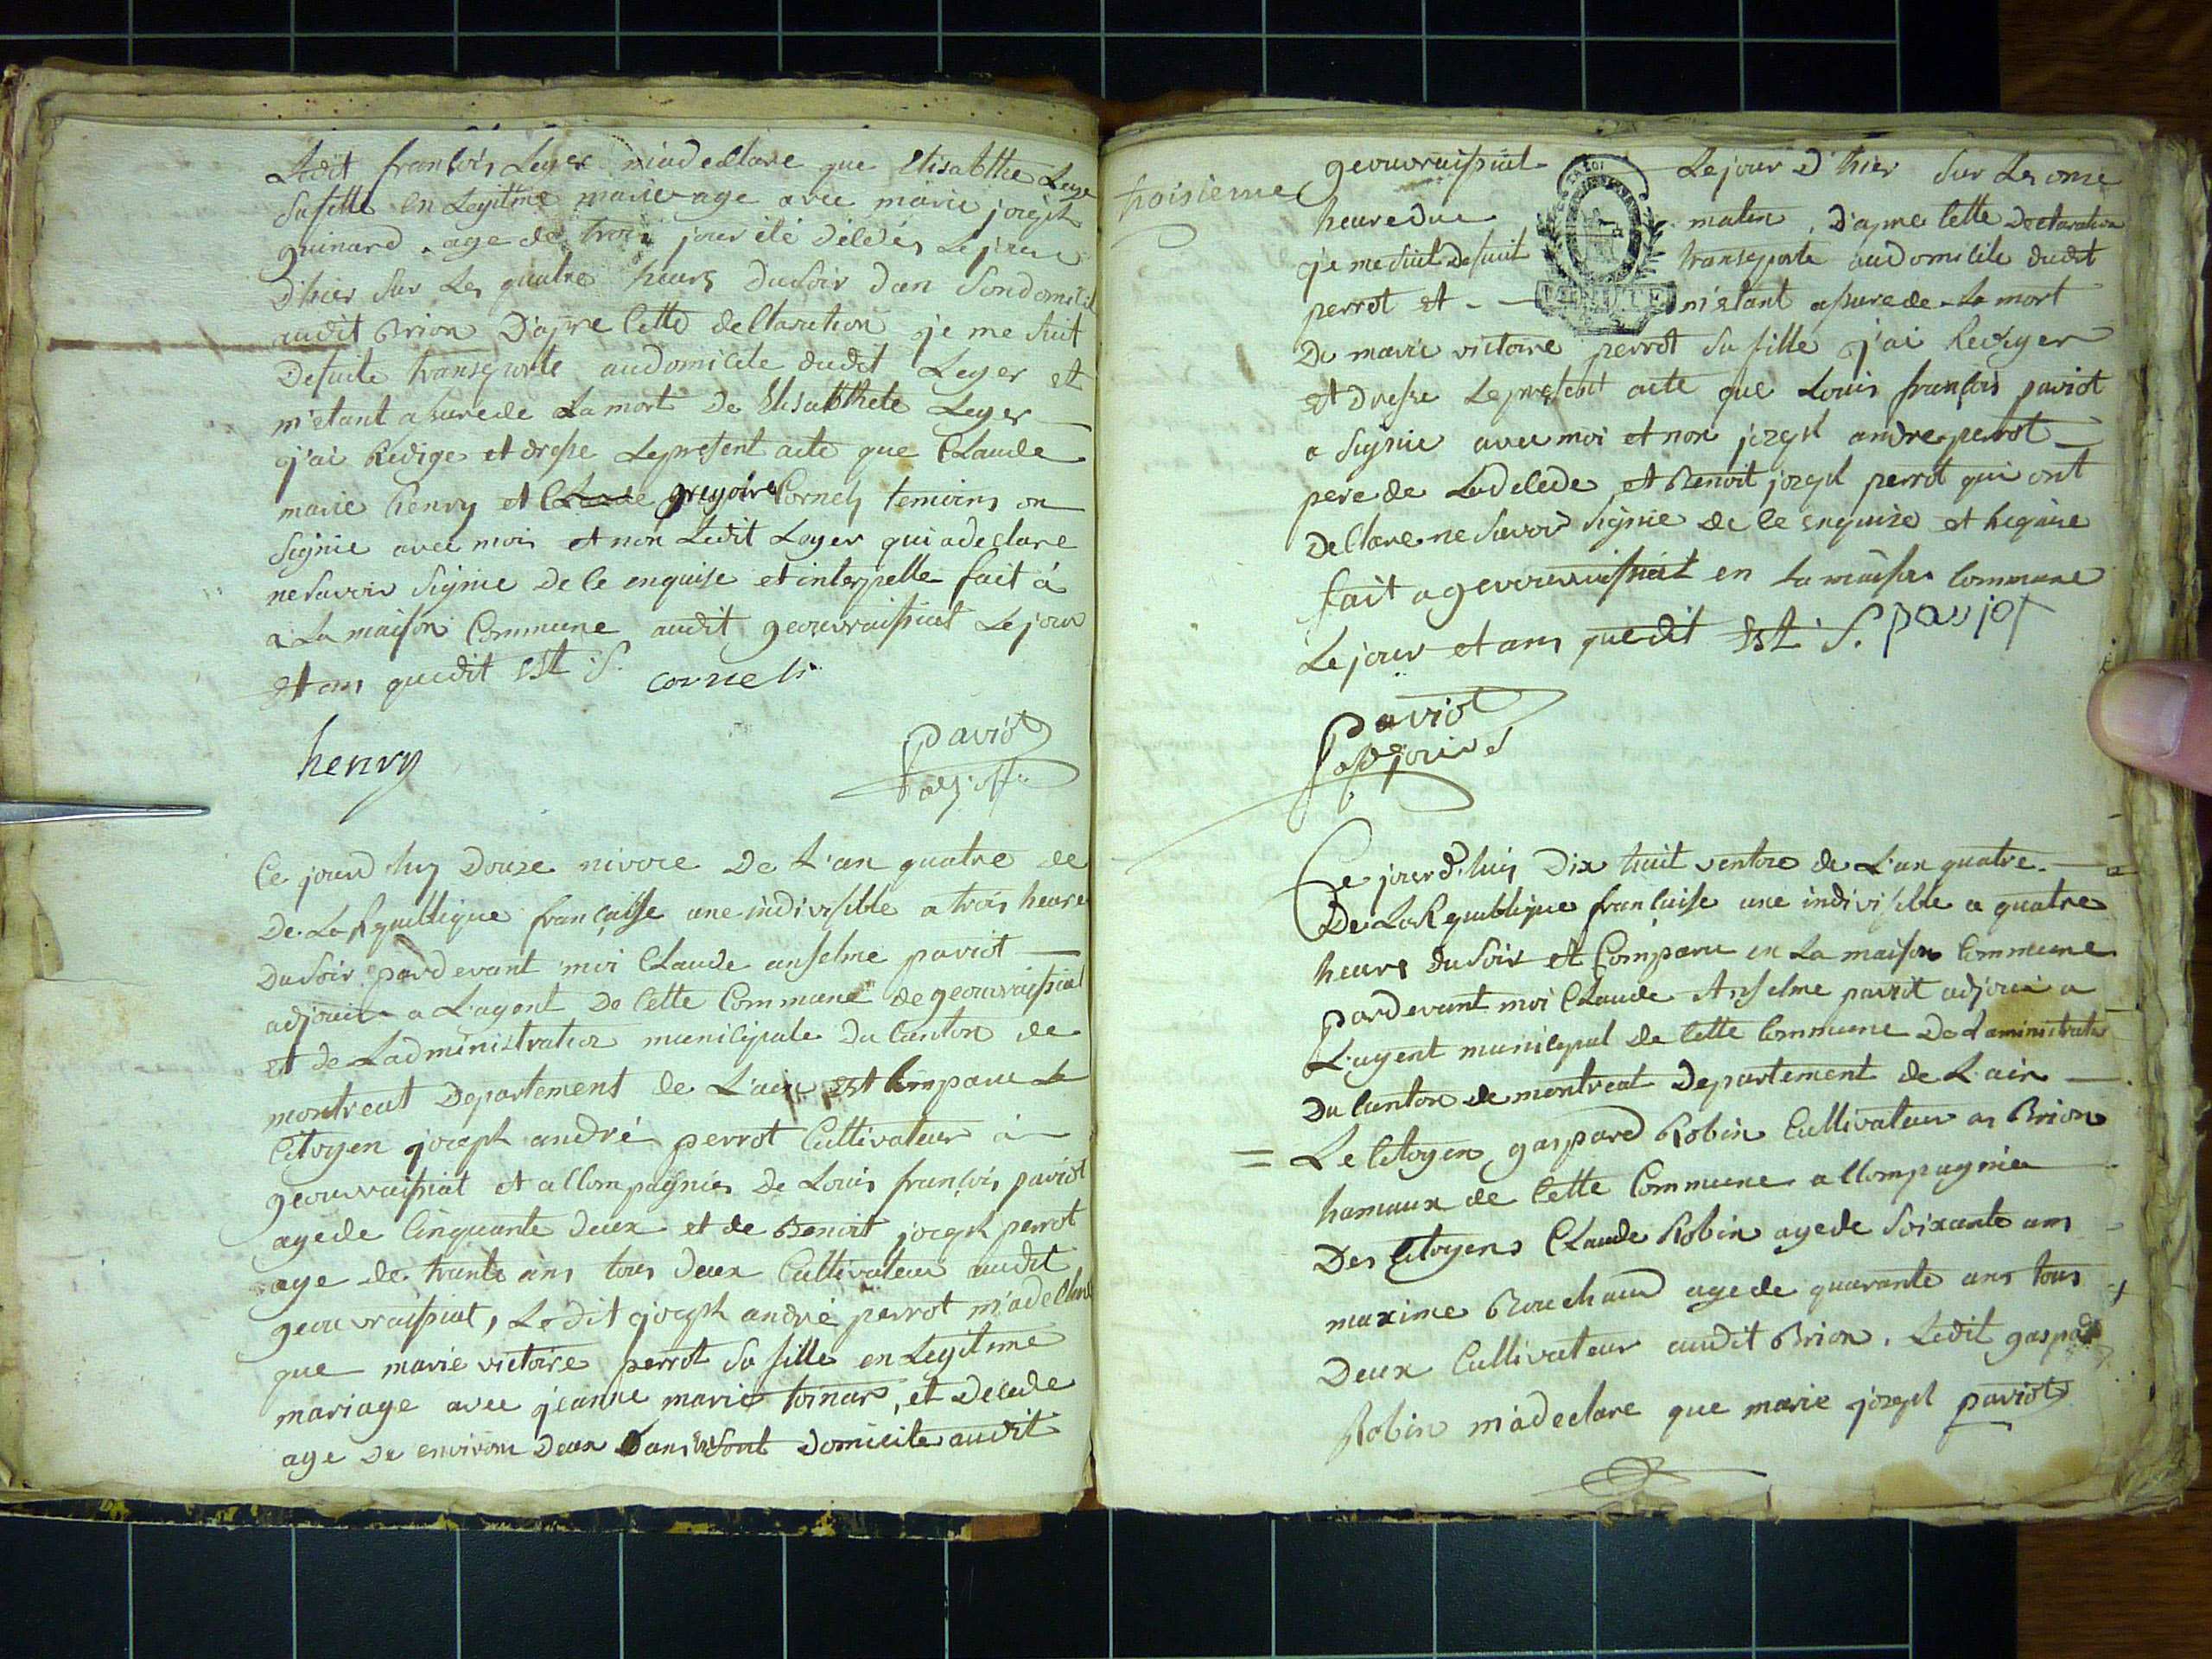 Ledit françois Leger m'a declare que Elisabthe Lege
sa fille en Legitime marievage avec marie joseph
guinard . age de trois jour été décédés Le jour
d'hier sur Les quatre heurs du soir dan son domicil
audit Brion D'apre cette declaration je me suit
De suite transporte au domicile dudit Leger et
m'etant assure de La mort De Elisabthete Leger
j'ai Redige et dresse Le present acte que Claude
marie henry et Claude gregoire Cornely temoins on
signie avec mois et non Ledit Leger qui a declare
ne savoir signie de ce enquise et interpelle fait à
a La maison Commune audit geouvraissiat Le jour
et an que dit est S. cornely
henry
paviot
adjoint
Ce jourd huy Douze nivose De L'an quatre de
De La Republique françaisse une indivisible a trois heure
Du soir pardevant moi Claude anselme paviot
adjoint a L'agent De cette Commune de geouvraissiat
et de L'administration municipale Du Canton de
montreal Departement de L'ain est Comparu Le
Citoyen joseph andré perrot Cultivateur à
geouvraissiat et accompagnies De Louis françois paviot
age de Cinquante deux et de Benoit joseph perrot
age de trante ans tous deux Cultivateur audit
geouvraissiat, Le dit joseph andré perrot m'a declare
que marie victoire perrot sa fille en Legitime
mariage avec jeanne marie tornar, et Decede
age De environ Deux ans Domicile audit
troisieme
geouvraissiat Le jour d'hier sur Les onse
heure du matin , D'apre cette Declaration
je me suit De suit transporte au domicile dudit
perrot et m'etant assure de La mort
LA LOI
MINUTE
De marie victoire perrot sa fille j'ai Rediger
et Dresse Le present acte que Louis françois paviot
a signie avec moi et non joseph andre perrot
pere de La decede et Benoit joseph perrot qui ont
Declare ne savoir signie de ce enquise et Requise
fait a geouvraissiat en La maison Commune
Le jour et ans que dit est S. paviot
paviot
adjoint
Ce jourd'huy Dix huit ventose de L'an quatre
De La Republique françaisse une indivisible a quatre
heure du soir et Comparu en La maison Commune
pardevant moi Claude Anselme paviot adjoint a
L'agent municipal de Cette Commune De L'aministration
Du Canton de montreal Departement de L'ain
= Le Citoyen gaspard Robin Cultivateur a Brion
hamaux de Cette Commune accompagnie
Des Citoyens Claude Robin age de soixante ans
maxime age de quarante ans tous
Deux Cultivateur audit Brion . Ledit gaspard
Robin m'a declare que marie joseph paviot